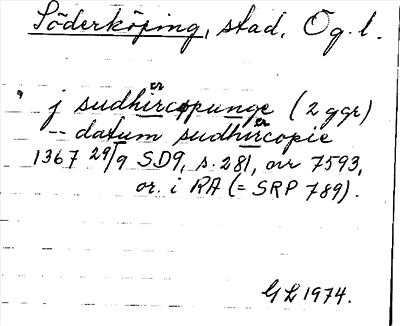 Söderköping, stad. Ög. l.
j sudhircøpunge (2 ggr)
er
-- datum sudhircopie
er
1367 29/9 SD9, s. 281, nr 7593,
or. i RA (= SRP 789).
GL 1974.